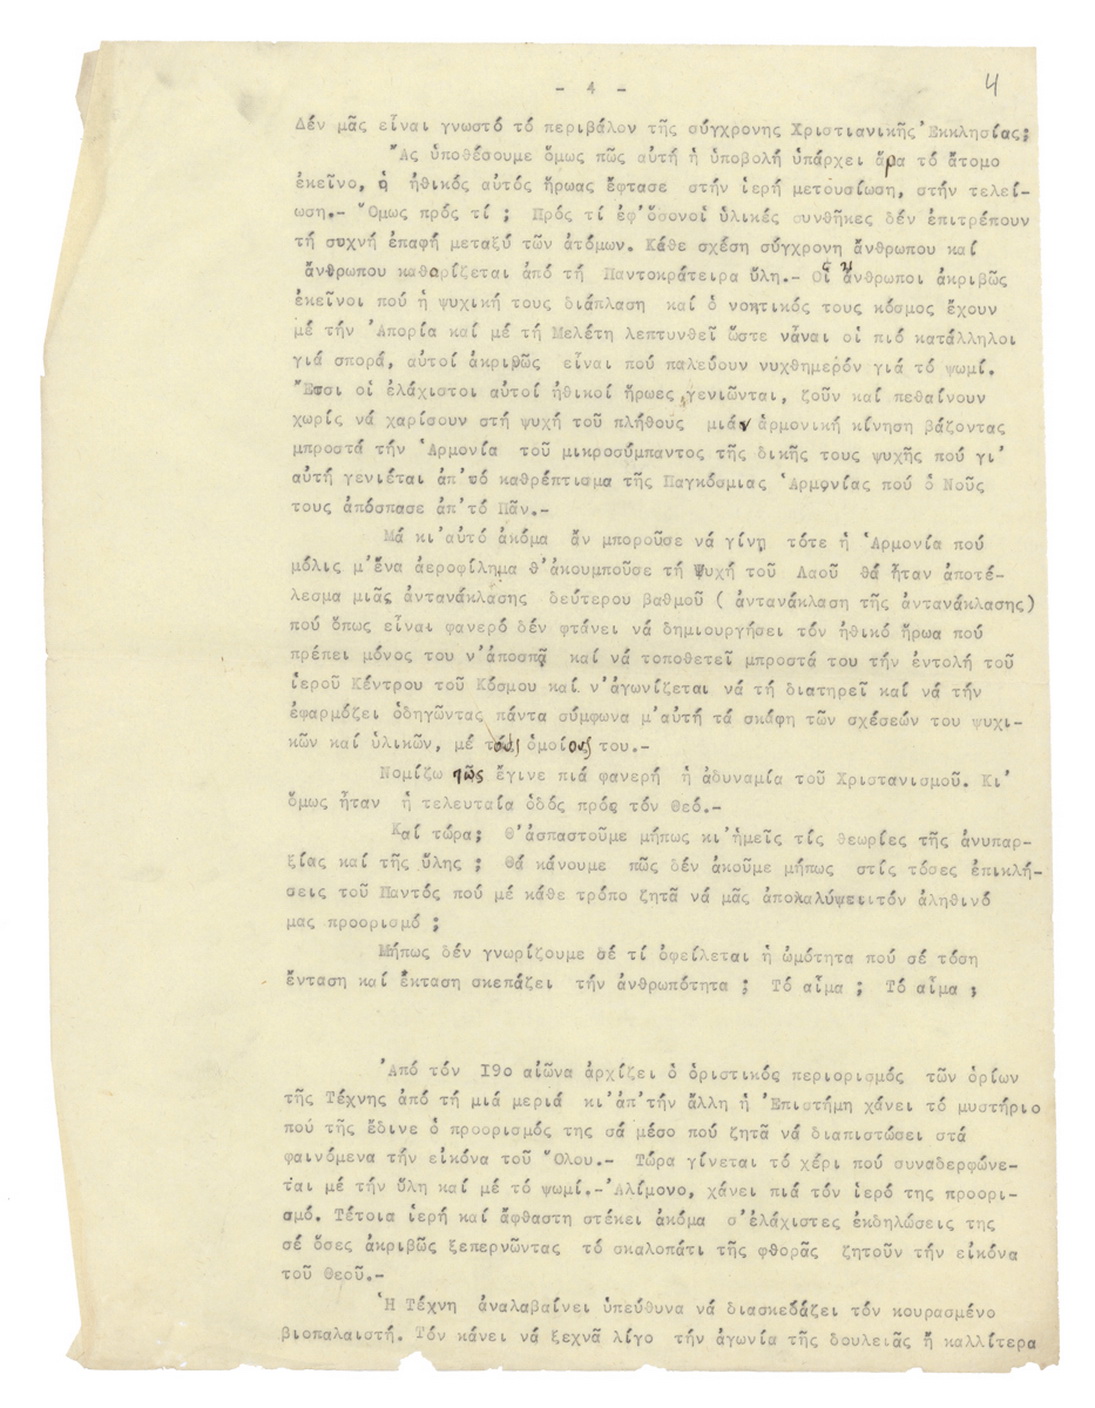 - 4 -
4
Δέν μᾶς εἶναι γνωστό τό περιβάλον τῆς σύγχρονης Χριστιανικῆς Ἐκκλησίας;
Ἄς ὑποθέσουμε ὅμως πῶς αὐτή ἡ ὑποβολή ὑπάρχει ἄρα τό ἄτομο
ἐκεῖνο, ὁ ἠθικός αὐτός ἥρωας ἔφτασε στήν ἱερή μετουσίωση, στήν τελεί-
ωση.- Ὅμως πρός τί ; Πρός τί ἐφ'ὅσονοἱ ὑλικές συνθῆκες δέν ἐπιτρέπουν
τή συχνή ἐπαφή μεταξύ τῶν ἀτόμων. Κάθε σχέση σύγχρονη ἄνθρωπου καί
ἄνθρωπου καθορίζεται ἀπό τή Παντοκράτειρα ὕλη.- Οἱ ἄνθρωποι ἀκριβῶς
ἐκεῖνοι πού ἡ ψυχική τους διάπλαση καί ὁ νοητικός τους κόσμος ἔχουν
μέ τήν Ἀπορία καί μέ τή Μελέτη λεπτυνθεῖ ὥστε νἆναι οἱ πιό κατάλληλοι
γιά σπορά, αὐτοί ἀκριβῶς εἶναι πού παλεύουν νυχθημερόν γιά τό ψωμί.
Ἔτσι οἱ ἐλάχιστοι αὐτοί ἠθικοί ἥρωες, γενιῶνται, ζοῦν καί πεθαίνουν
χωρίς νά χαρίσουν στή ψυχή τοῦ πλήθους μιάν ἁρμονική κίνηση βάζοντας
μπροστά τήν Ἁρμονία τοῦ μικροσύμπαντος τῆς δικῆς τους ψυχῆς πού γι'
αὐτή γενιέται ἀπ'τό καθρέπτισμα τῆς Παγκόσμιας Ἁρμονίας πού ὁ Νοῦς
τους ἀπόσπασε ἀπ'τό Πᾶν.-
Μά κι'αὐτό ἀκόμα ἄν μποροῦσε νά γίνῃ τότε ἡ Ἁρμονία πού
μόλις μ'ἕνα ἀεροφίλημα θ'ἀκουμποῦσε τή Ψυχή τοῦ Λαοῦ θά ἦταν ἀποτέ-
λεσμα μιᾶς ἀντανάκλασης δεύτερου βαθμοῦ ( ἀντανάκλαση τῆς ἀντανάκλασης)
πού ὅπως εἶναι φανερό δέν φτάνει νά δημιουργήσει τόν ἠθικό ἥρωα πού
πρέπει μόνος του ν'ἀποσπᾷ καί νά τοποθετεῖ μπροστά του τήν ἐντολή τοῦ
ἱεροῦ Κέντρου τοῦ Κόσμου καί ν'ἀγωνίζεται νά τή διατηρεῖ καί νά τήν
ἐφαρμόζει ὁδηγῶντας πάντα σύμφωνα μ'αὐτή τά σκάφη τῶν σχέσεών του ψυχι-
κῶν καί ὑλικῶν, μέ τούς ὁμοίους του.-
Νομίζω πῶς ἔγινε πιά φανερή ἡ ἀδυναμία τοῦ Χριστανισμοῦ. Κι'
ὅμως ἦταν ἡ τελευταία ὁδός πρός τόν Θεό.-
Καί τώρα; Θ'ἀσπαστοῦμε μήπως κι'ἡμεῖς τίς θεωρίες τῆς ἀνυπαρ-
ξίας καί τῆς ὕλης ; Θά κάνουμε πῶς δέν ἀκοῦμε μήπως στίς τόσες ἐπικλή-
σεις τοῦ Παντός πού μέ κάθε τρόπο ζητᾶ νά μᾶς ἀποκαλύψειτόν ἀληθινό
μας προορισμό ;
Μήπως δέν γνωρίζουμε σέ τί ὀφείλεται ἡ ὠμότητα πού σέ τόση
ἔνταση καί ἔκταση σκεπάζει τήν ἀνθρωπότητα ; Τό αἷμα ; Τό αἷμα ;
Ἀπό τόν 19ο αἰῶνα ἀρχίζει ὁ ὁριστικός περιορισμός τῶν ὁρίων
τῆς Τέχνης ἀπό τή μιά μεριά κι'ἀπ'τήν ἄλλη ἡ Ἐπιστήμη χάνει τό μυστήριο
πού τῆς ἔδινε ὁ προορισμός της σά μέσο πού ζητᾶ νά διαπιστώσει στά
φαινόμενα τήν εἰκόνα τοῦ Ὅλου.- Τώρα γίνεται τό χέρι πού συναδερφώνε-
ται μέ τήν ὕλη καί μέ τό ψωμί.-Ἀλίμονο, χάνει πιά τόν ἱερό της προορι-
σμό. Τέτοια ἱερή καί ἄφθαστη στέκει ἀκόμα σ'ἐλάχιστες ἐκδηλώσεις της
σέ ὅσες ἀκριβῶς ξεπερνῶντας τό σκαλοπάτι τῆς φθορᾶς ζητοῦν τήν εἰκόνα
τοῦ Θεοῦ.-
Ἡ Τέχνη ἀναλαβαίνει ὑπεύθυνα νά διασκεδάζει τόν κουρασμένο
βιοπαλαιστή. Τόν κάνει νά ξεχνᾶ λίγο τήν ἀγωνία τῆς δουλειᾶς ἤ καλλίτερα